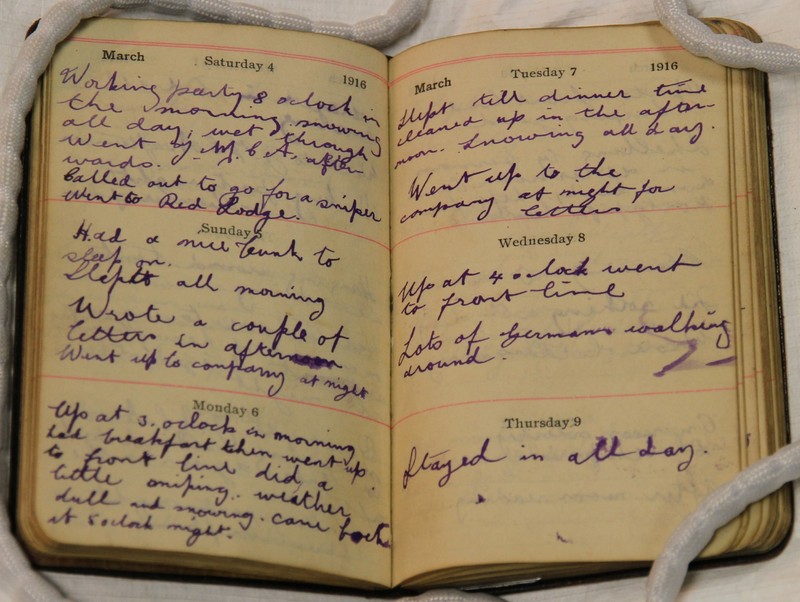 March Saturday 4 1916
Working party 8 oclock in
the morning snowing
all day, wet through
Went Y.M.C.A. after-
wards.
Called out to go for a sniper
went to Red Lodge.
Sunday 5
Had a nice bunk to
sleep on.
Slept all morning
Wrote a couple of
letters in afternoon
Went up to company at night
Monday 6
Up at 3. oclock in morning
had breakfast then went up
to front line did a
little sniping. weather
dull and snowing. came back
at 8 oclock night.
March Tuesday 7 1916
Slept till dinner time
cleaned up in the after-
noon. Snowing all day.
Went up to the
company at night for
letters
Wednesday 8
Up at 4 oclock went
to front line
Lots of Germans walking
around.
Thursday 9
Stayed in all day.